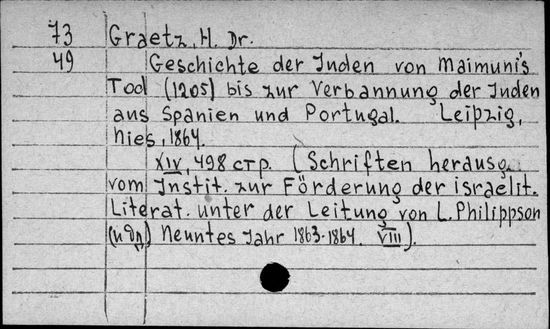 73 Graetz, H. Dr.
49 Geschichte der Juden von Maimuni's
Tod (1205) bis zur Verbannung der Juden
aus Spanien und Portugal. Leipzig,
hies, 1864.
XIV, 498 стр. (Schriften herausg.
vom Instit. zur Förderung der israelit.
Literat. unter der Leitung von L. Philippson
(и др.) Neuntes Jahr 1863-1864. VIII).